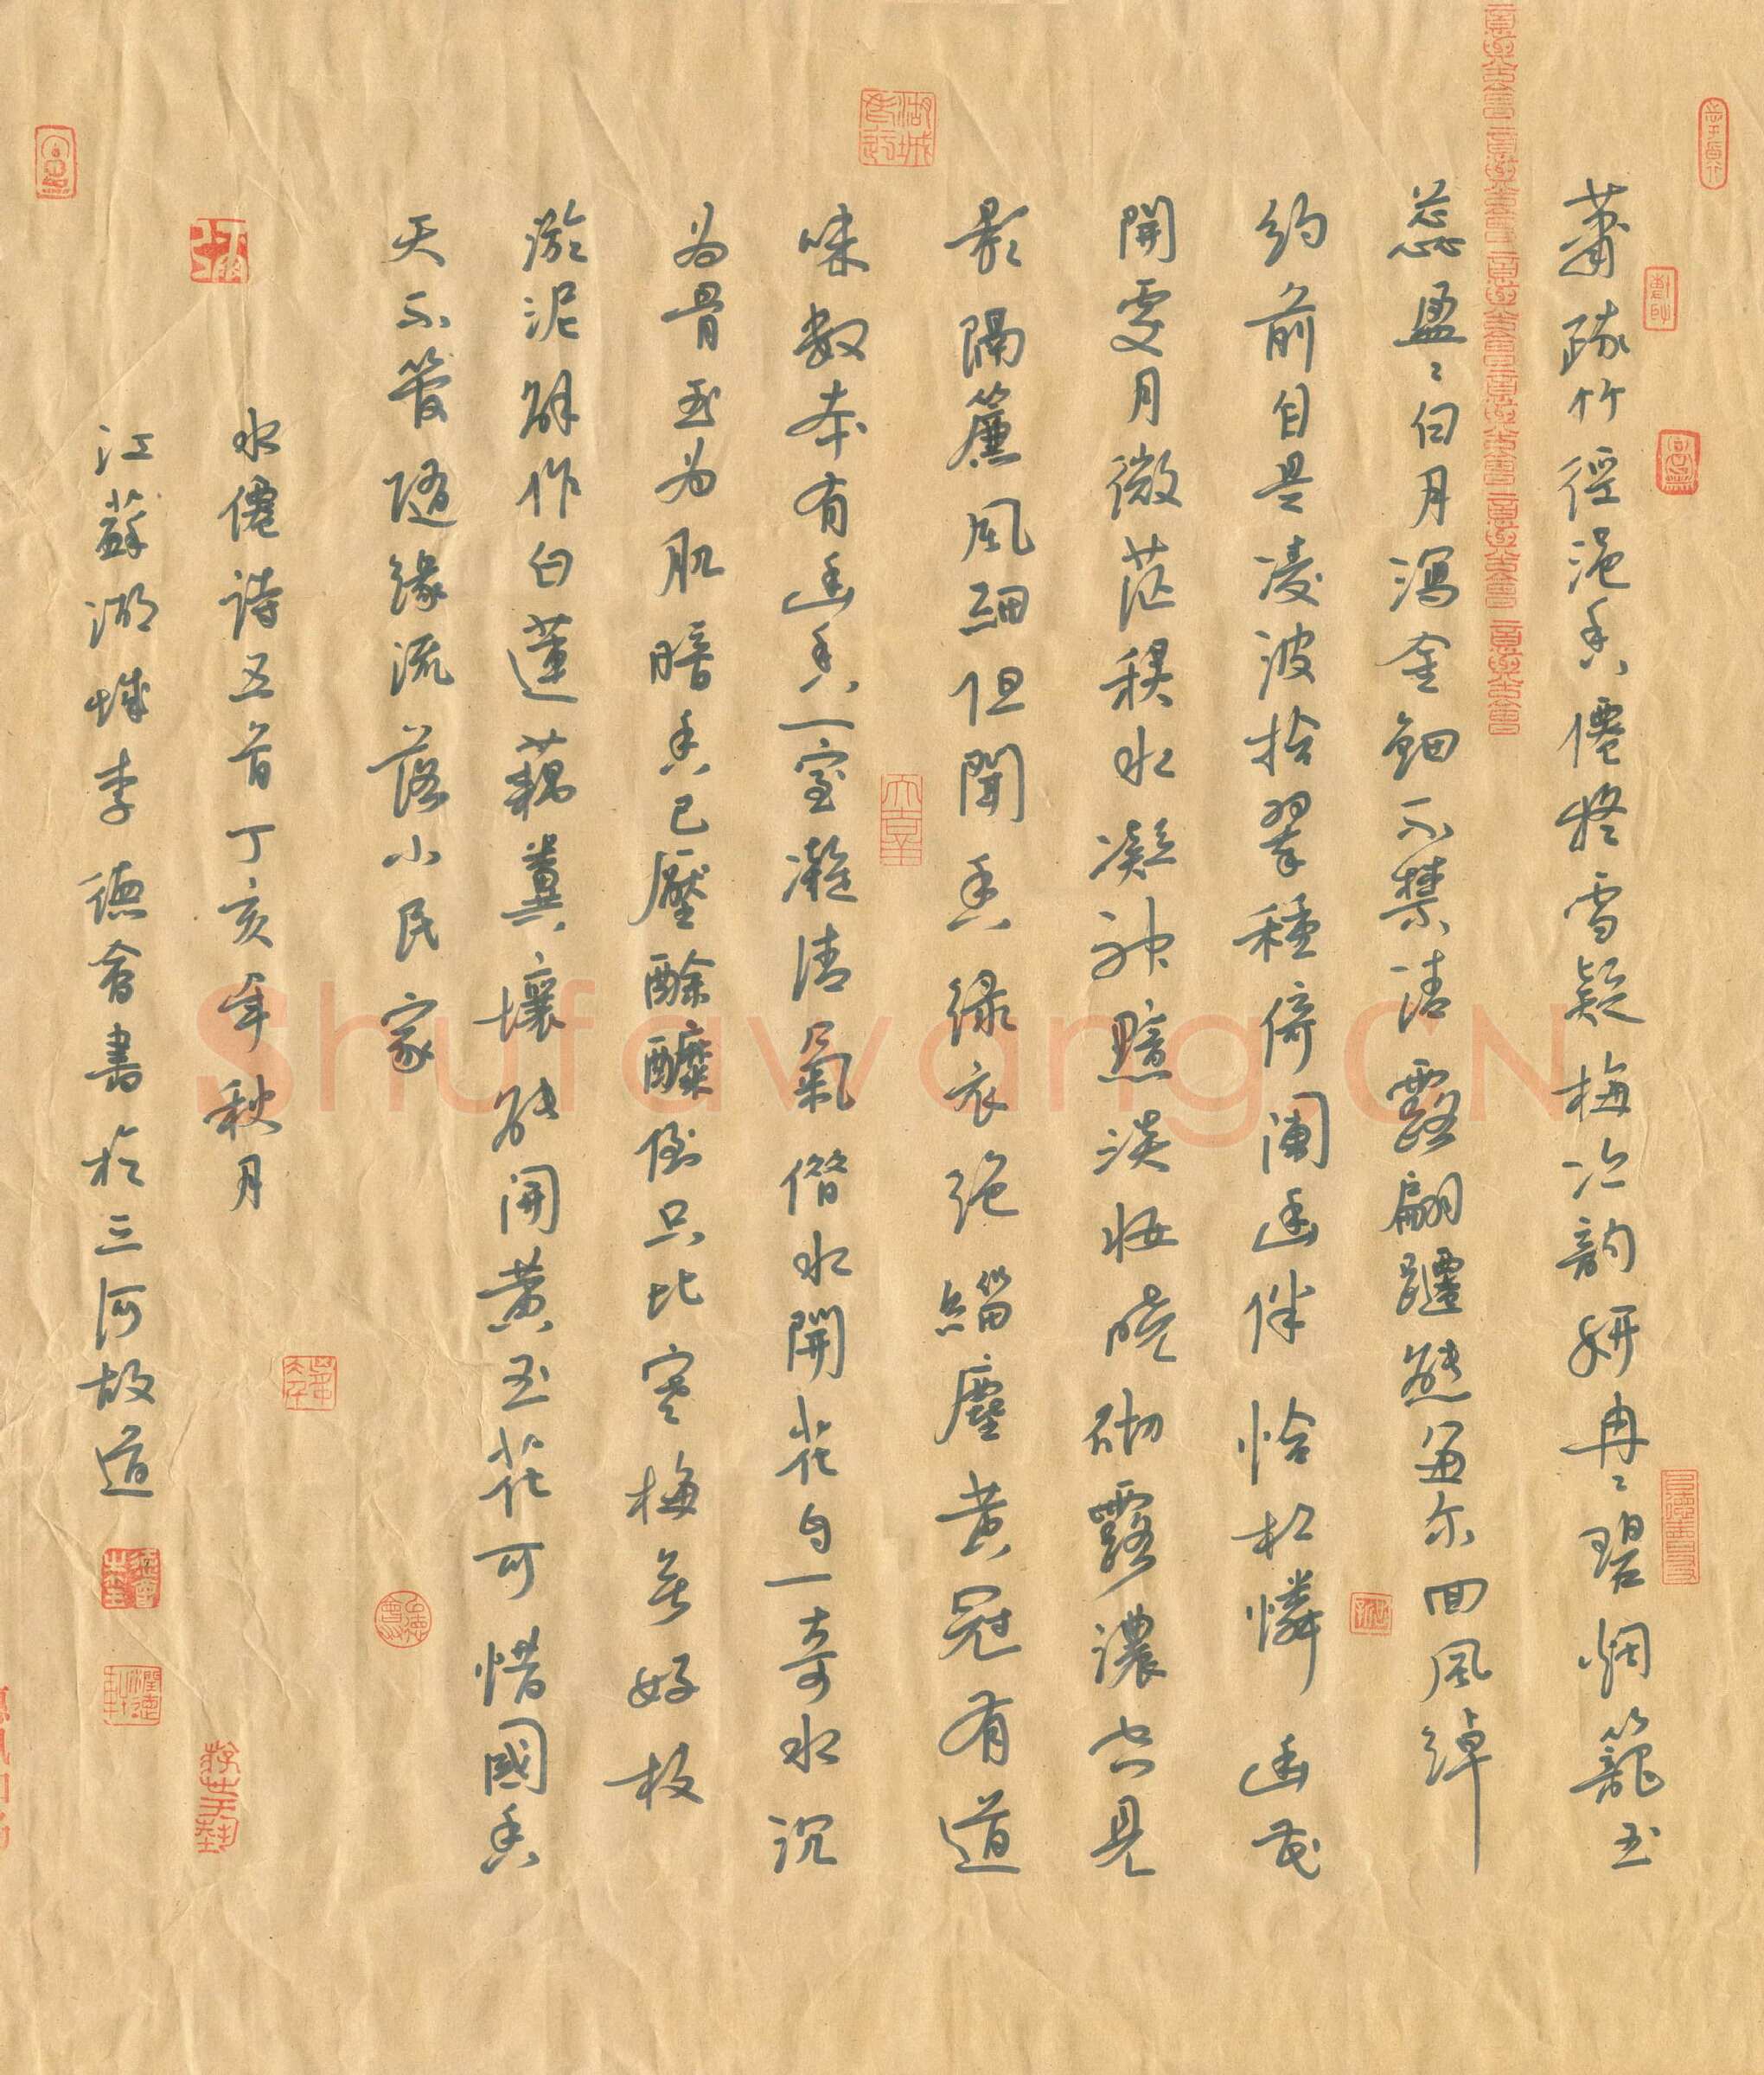 蕭疏竹徑浥香僊 怪雪疑梅冷韵妍 冉冉碧烟籠玉
蕊 盈盈白月瀉金鈿 不禁清露翩躚態 並尔回風綽
約前 自是凌波拾翠種 倚闌幽伴恰相憐 幽花
開處月微茫 秋水凝神黯淡妝 曉砌露濃空見
影 隔簾風細但聞香 綠衣絶緇塵 黃冠有道
味 數本有幽香 一室凝清氣 借水開花自一奇 水沉
为骨玉为肌 暗香已壓酴醾倒 只比寒梅無好枝
淤泥解作白蓮藕 糞壤能開黃玉花 可惜國香
天不管 隨緣流落小民家
水僊詩五首 丁亥年秋月
江蘇湖城李德會書於三河故道
Shufawang.CN